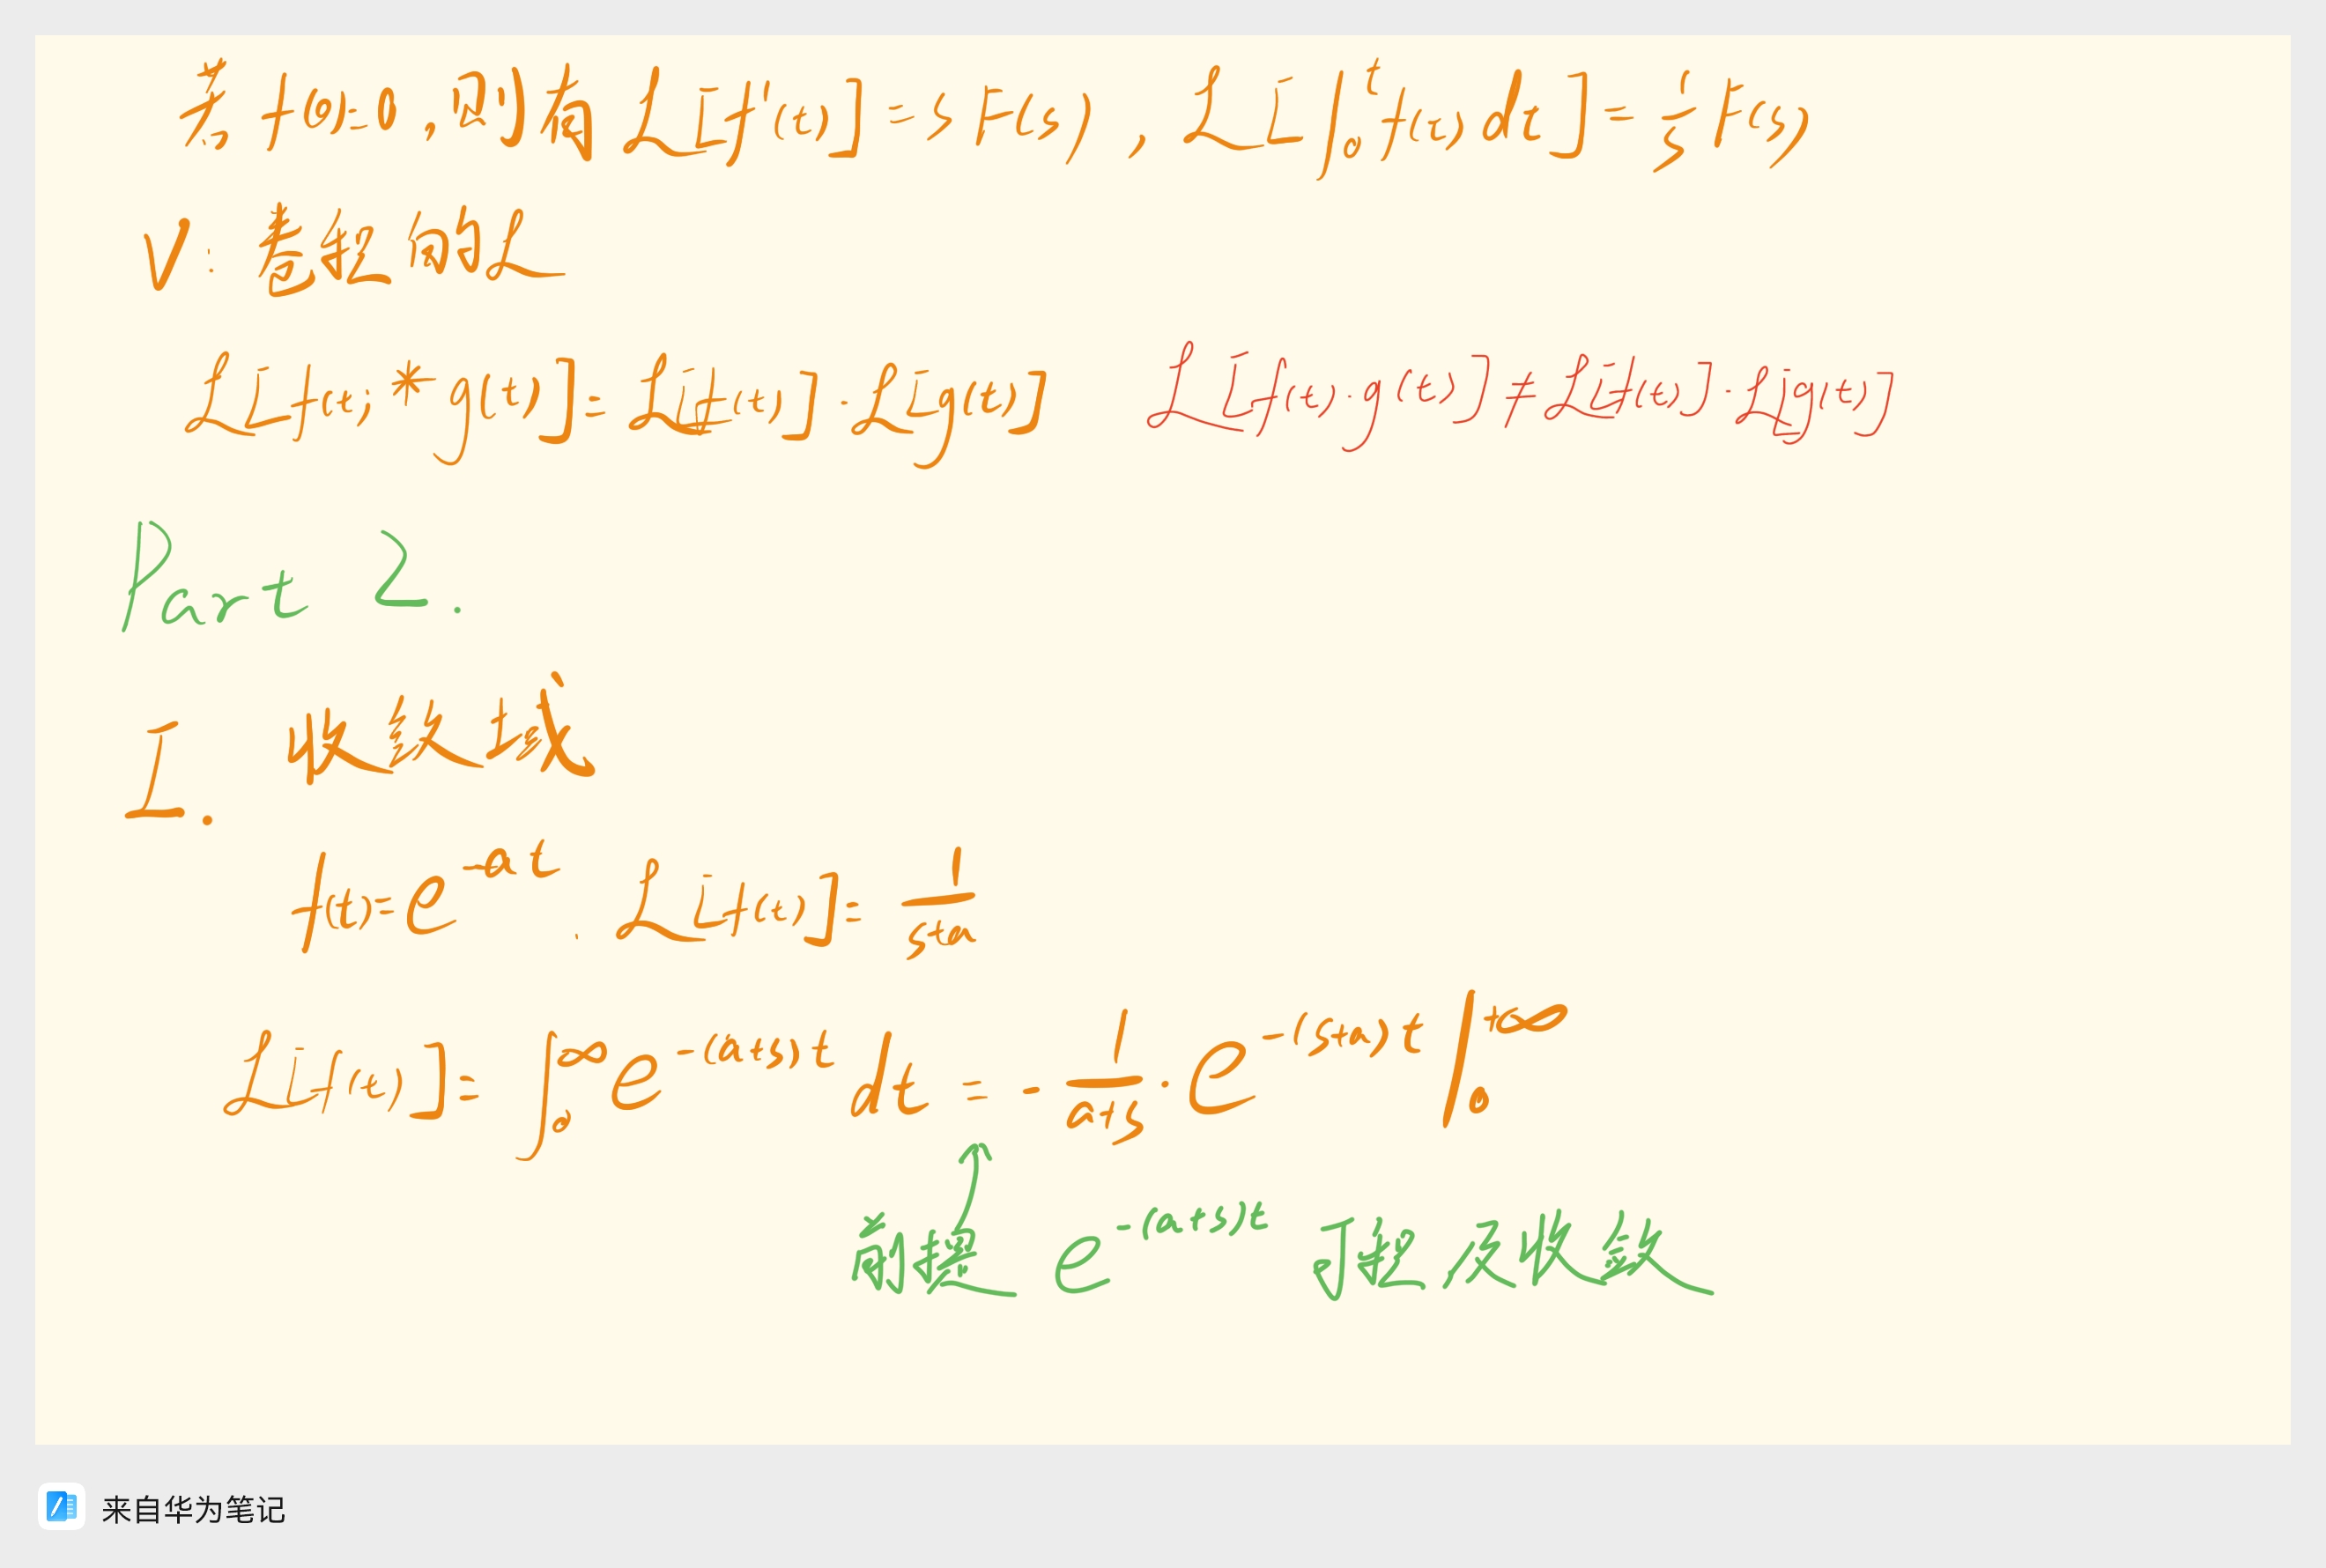 若 f(0)=0,则有 ℒ[f'(t)]=sF(s), ℒ[∫₀ᵗf(t)dt]=1/s F(s)
V: 卷积的ℒ
ℒ[f(t)*g(t)]=ℒ[f(t)]·ℒ[g(t)] ℒ[f(t)·g(t)]≠ℒ[f(t)]·ℒ[g(t)]
Part 2.
I. 收敛域
f(t)=e^{-at}. ℒ[f(t)]=1/(s+a)
ℒ[f(t)]=∫₀^∞ e^{-(a+s)t}dt = -1/(a+s)·e^{-(s+a)t}|₀^{+∞}
前提 e^{-(a+s)t} 可积 及收敛
来自华为笔记